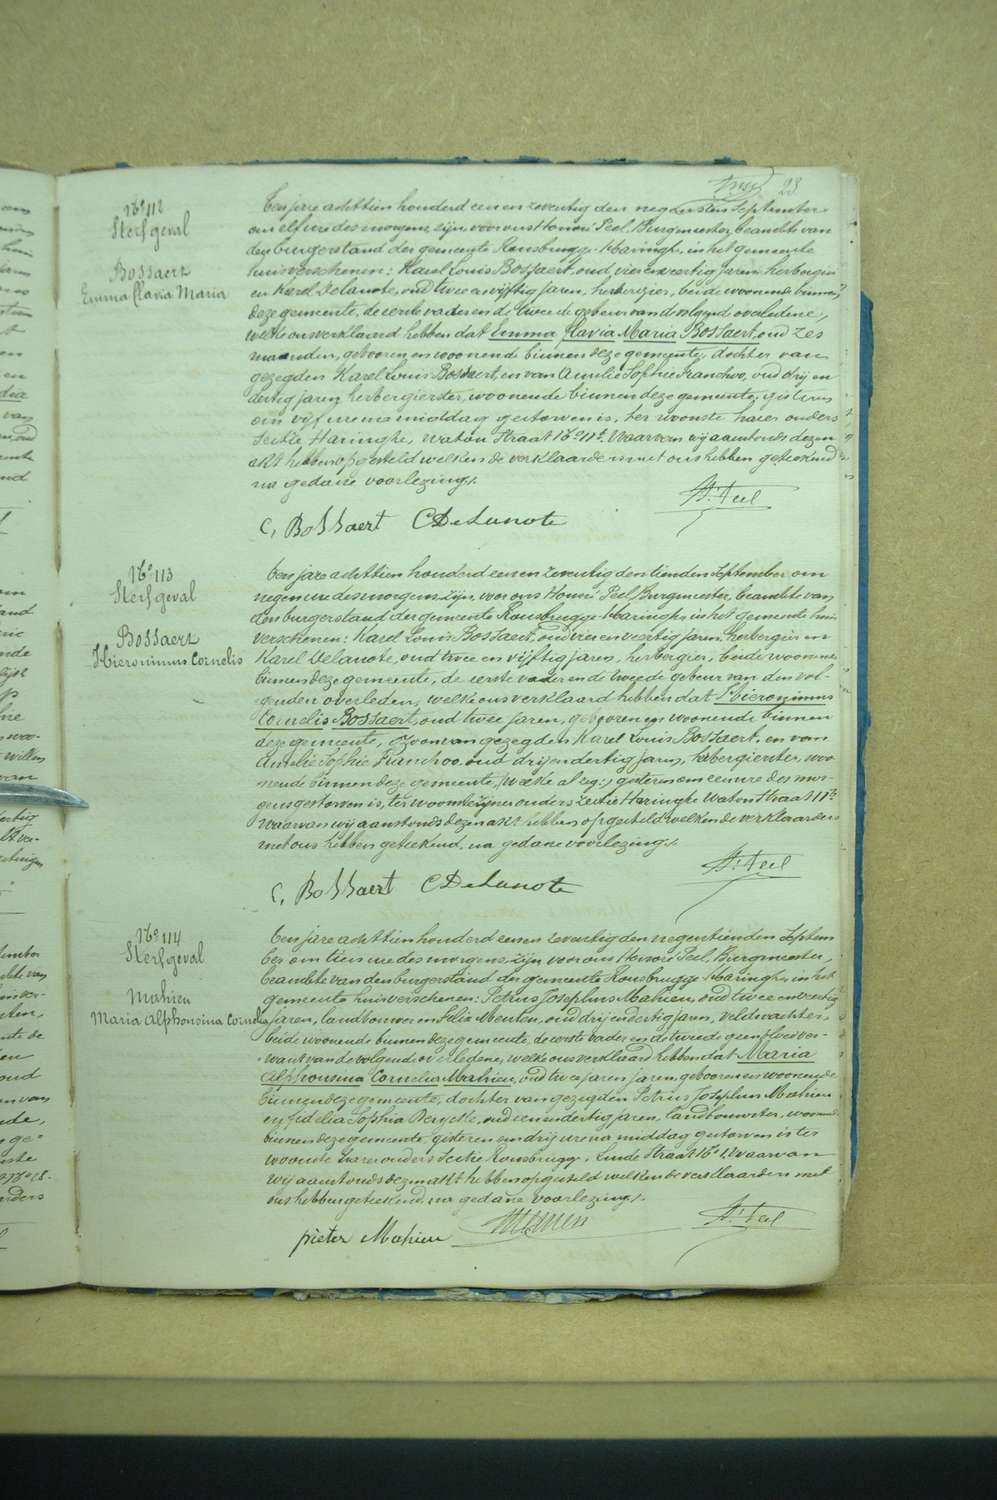 23
N° 112
Sterfgeval
Bossaert
Emma Flavia Maria
Een jare achttien honderd een en zeventig den negensten September
om elf ure des morgens, zijn, voor ons Honoré Peel, Burgmeester, beambte van
den burgerstand der gemeente Rousbrugge-Haringhe, in het gemeente
huis verschenen: Karel Louis Bossaert, oud vier en veertig jaren, herbergier
en Karel Delanote, oud twee en vijftig jaren, herbergier, beide woonende binnen
deze gemeente, de eerste vader en de tweede gebeur van de volgende overledene,
welke ons verklaard hebben dat Emma Flavia Maria Bossaert, oud zes
maanden, geboren en woonende binnen deze gemeente, dochter van
gezegden Karel Louis Bossaert, en van Amelie Sophie Franchoo, oud drij en
dertig jaren, herbergierster, woonende binnen deze gemeente, gisteren
om vijf ure na middag gestorven is, ter woonste harer ouders
Sectie Haringhe, Watou Straat N° 11 b. Waarvan wij aanstonds dezen
akt hebben opgesteld welken de verklaarders met ons hebben geteekend
na gedane voorlezing.
C, Bossaert C DeLanote
H. Peel
N° 113
Sterfgeval
Bossaert
Hieronimus Cornelis
Een jare achttien honderd een en zeventig den tienden September om
negen ure des morgens, zijn, voor ons Honoré Peel, Burgmeester, beambte van
den burgerstand der gemeente Rousbrugge-Haringhe, in het gemeente huis
verschenen: Karel Louis Bossaert, oud vier en veertig jaren, herbergier en
Karel Delanote, oud twee en vijftig jaren, herbergier, beide woonende
binnen deze gemeente, de eerste vader en de tweede gebeur van den vol-
genden overleden, welke ons verklaard hebben dat Hieronimus
Cornelis Bossaert, oud twee jaren, geboren en woonende binnen
deze gemeente, zoon van gezegden Karel Louis Bossaert, en van
Amelie Sophie Franchoo, oud drij en dertig jaren, herbergierster, woo-
nende binnen deze gemeente, gisteren om een ure des mor-
gens gestorven is, ter woonste zijner ouders Sectie Haringhe Watou Straat 11 b.
Waarvan wij aanstonds dezen akt hebben opgesteld welken de verklaarders
met ons hebben geteekend, na gedane voorlezing.
C, Bossaert C DeLanote
H. Peel
N° 114
Sterfgeval
Mahieu
Maria Alphonsina Cornelia
Een jare achttien honderd een en zeventig den negentienden Septem
ber om tien ure des morgens, zijn voor ons Honoré Peel, Burgmeester,
beambte van den burgerstand der gemeente Rousbrugge-Haringhe, in het
gemeente huis verschenen: Petrus Josephus Mahieu, oud twee en veertig
jaren, landbouwer en Felix Meuten, oud drij en dertig jaren, veldwachter,
beide woonende binnen deze gemeente, de eerste vader en de tweede geen bloedver-
want van de volgende overledene, welke ons verklaard hebben dat Maria
Alphonsina Cornelia Mahieu, oud twee jaren, geboren en woonende
binnen deze gemeente, dochter van gezegden Petrus Josephus Mahieu
en Fidelia Sophia Beryckle, oud een en dertig jaren, landbouwster, woonende
binnen deze gemeente, gisteren om drij ure na middag gestorven is ter
woonste harer ouders Sectie Rousbrugge, Linde Straat N° Waarvan
wij aanstonds dezen akt hebben opgesteld welken de verklaarders met
ons hebben geteekend, na gedane voorlezing.
pieter Mahieu
H. Peel